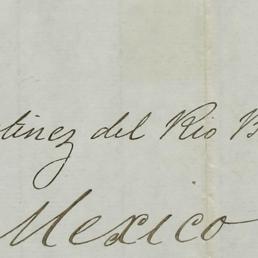 tinez del Rio B
Mexico